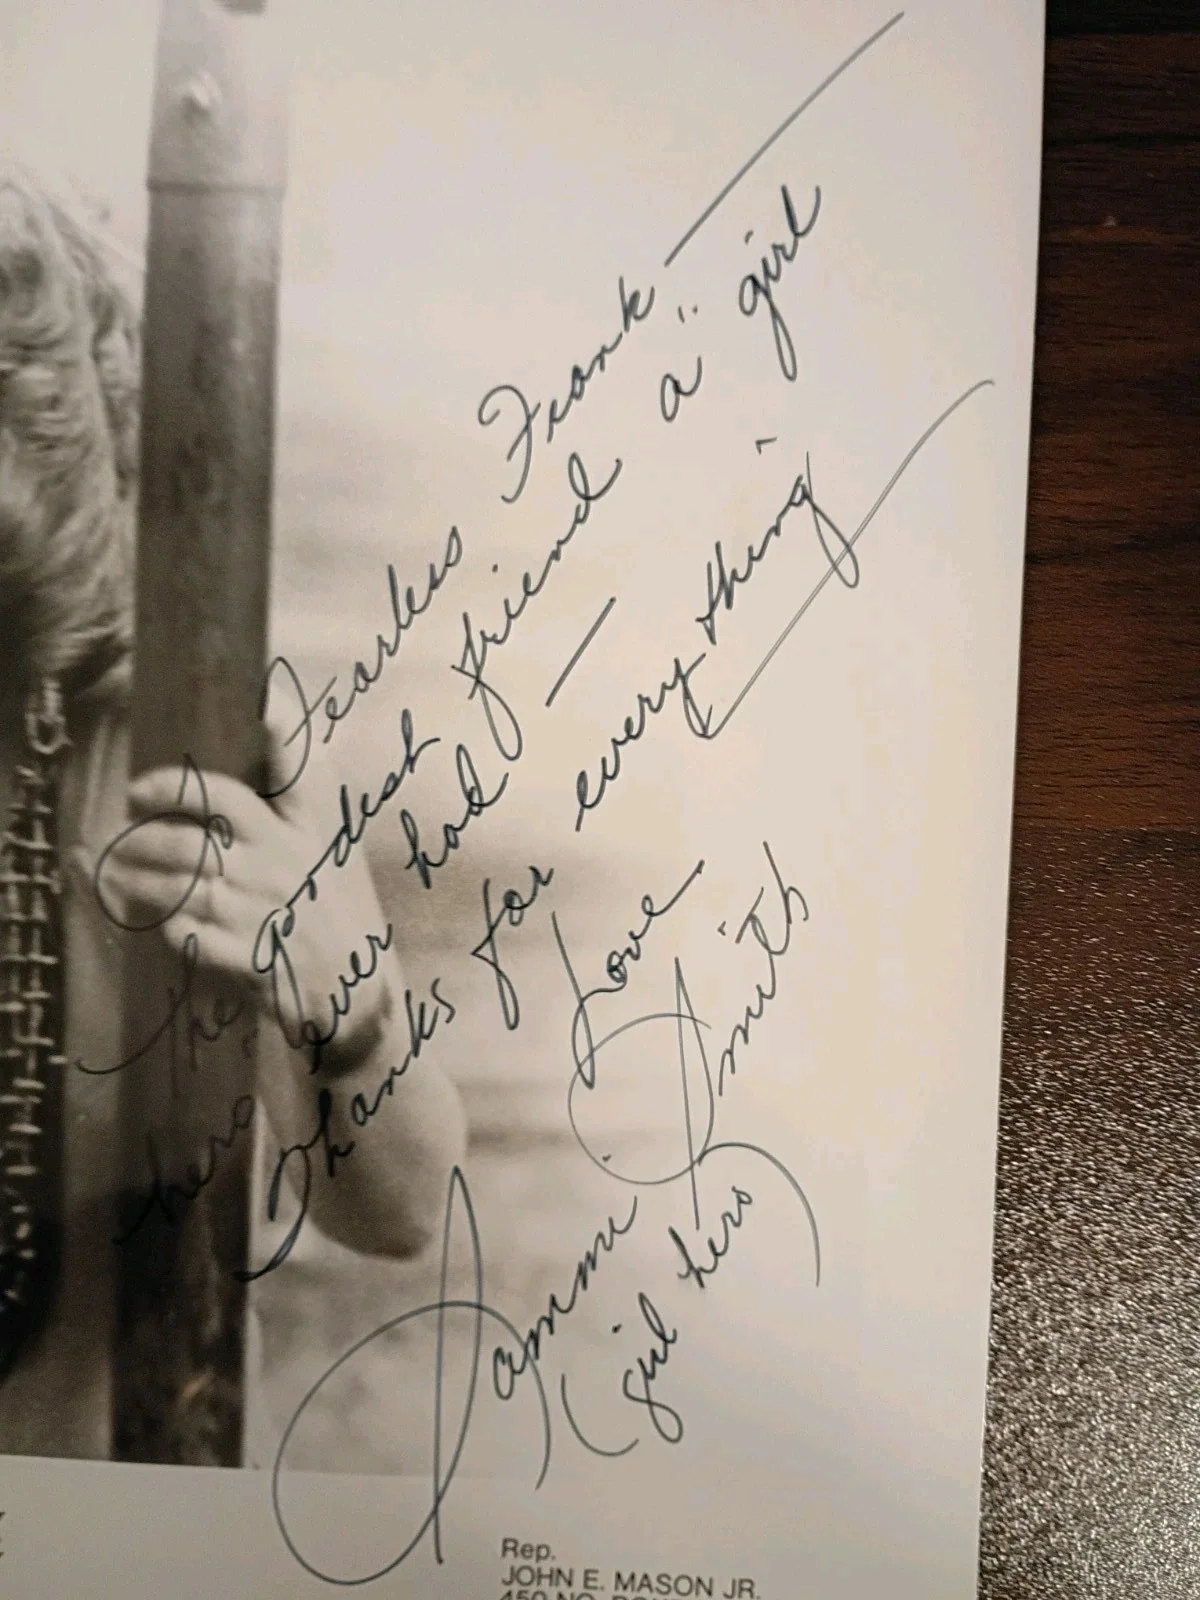 To Fearless Frank —
the goodest friend a "girl
hero" ever had —
Thanks for everything
Love,
Sammi Smith
(girl hero)
Rep.
JOHN E. MASON JR.